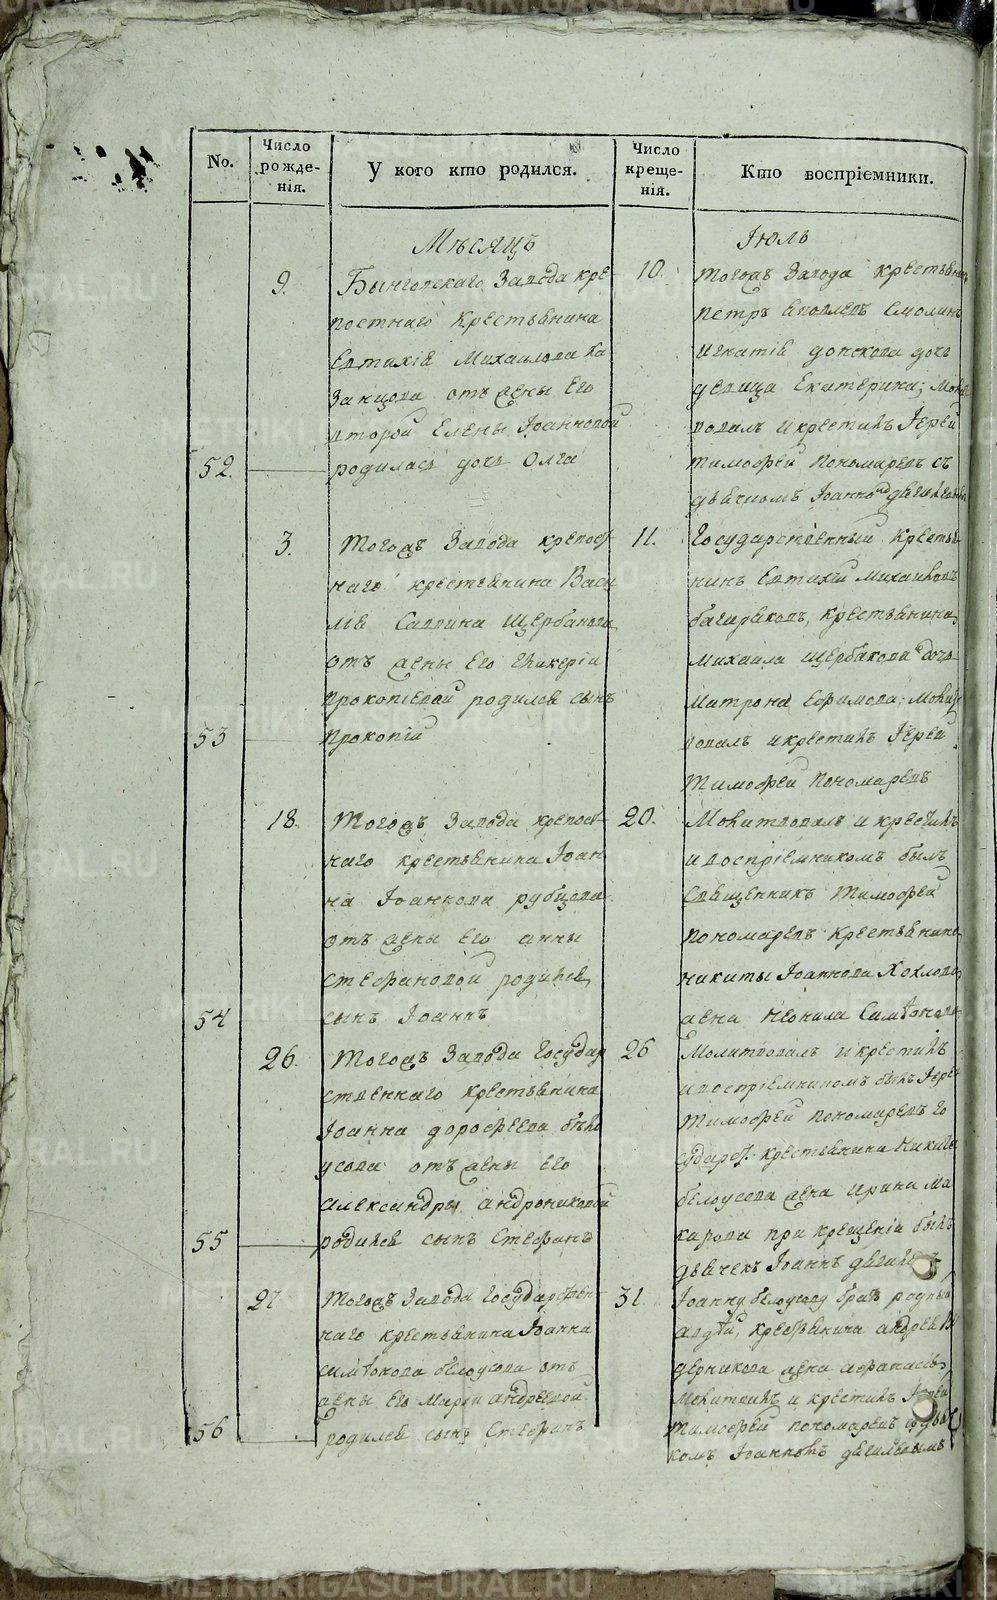 No.
Число рожде-нія.
У кого кто родился.
Число креще-нія.
Кто воспріемники.
Мѣсяцъ
Іюль
9.
Бынговскаго Завода кре
постнаго крестьянина
Евтихія Михаилова Ка
занцова отъ жены Его
второй Елены Іоанновой
52.
родилась дочь Олга
10.
тогожъ Завода крестьянинъ
Петръ Смолинъ
Игнатія донскова дочь
девица Екатерина; Молит
вовалъ и крестилъ Іерей
Тимофей Пономаревъ съ
дьячкомъ Іоанномъ
3.
Тогожъ Завода крепост
наго крестьянина Васи
лія Саввина Щербакова
отъ жены Его Гликеріи
Прокопіевой родился сынъ
53
Прокопій
11.
Государственный Крестья
нинъ Евтихій Михаиловъ
крестьянина
Михаила Щербакова дочь
Матрона Ефимова; Молит
вовалъ и крестилъ Іерей
Тимофей Пономаревъ
18.
Тогожъ Завода крепост
наго крестьянина Іоан
на Іоаннова рубцова
отъ жены Его анны
Стефановой родился
54
сынъ Іоаннъ
20.
Молитвовалъ и крестилъ
и воспріемникомъ былъ
Священникъ Тимофей
Пономаревъ крестьянина
Никиты Іоаннова Хохлова
жена Неонила Симеонова
26.
Тогожъ Завода Государ
ственнаго крестьянина
Іоанна дорофеева бѣло
усова отъ жены Его
Александры андрониковой
55
родился сынъ Стефанъ
26
Молитвовалъ и крестилъ
и воспріемникомъ былъ Іерей
Тимофей Пономаревъ Го
сударст. крестьянина Никиты
бѣлоусова жена Ирина Ма
карова при крещеніи былъ
дьячекъ Іоаннъ
27
Тогожъ Завода Государствен
наго крестьянина Іоанна
симеонова бѣлоусова отъ
жены Его Маріи андреевой
56
родился сынъ Стефанъ
31.
Іоанну бѣлоусову братъ родный
крестьянина андрея
жена
Молитвилъ и крестилъ Іерей
Тимофей Пономаревъ
комъ Іоанномъ
METRIKI.GASO-URAL.RU